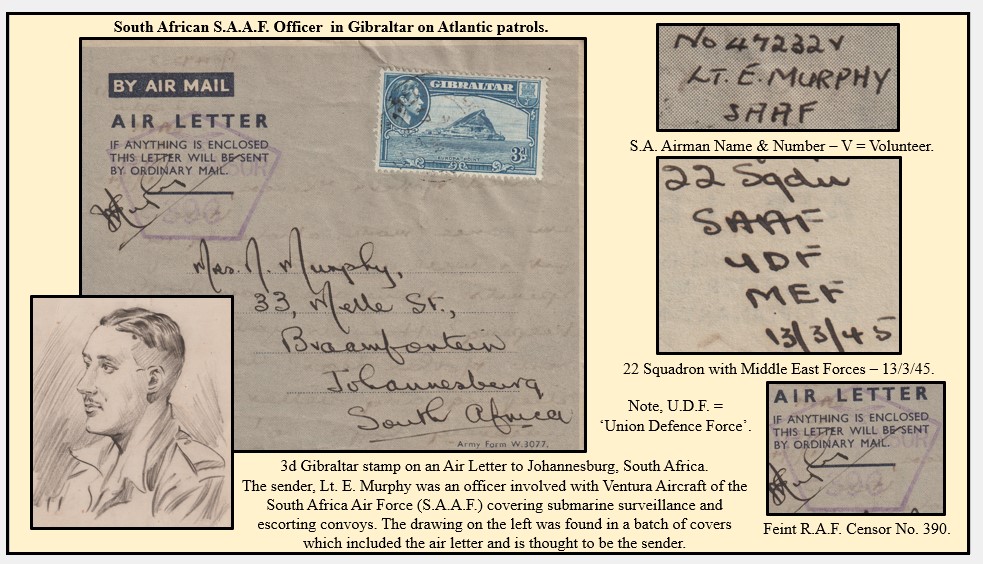 South African S.A.A.F. Officer in Gibraltar on Atlantic patrols.
BY AIR MAIL
AIR LETTER
IF ANYTHING IS ENCLOSED
THIS LETTER WILL BE SENT
BY ORDINARY MAIL.
GIBRALTAR
3d
Mrs. N. Murphy,
33, Melle St.,
Braamfontein
Johannesburg
South Africa
Army Form W.3077.
3d Gibraltar stamp on an Air Letter to Johannesburg, South Africa.
The sender, Lt. E. Murphy was an officer involved with Ventura Aircraft of the
South Africa Air Force (S.A.A.F.) covering submarine surveillance and
escorting convoys. The drawing on the left was found in a batch of covers
which included the air letter and is thought to be the sender.
No 47232V
LT. E. MURPHY
SAAF
S.A. Airman Name & Number – V = Volunteer.
22 Sqdn
SAAF
UDF
MEF
13/3/45
22 Squadron with Middle East Forces – 13/3/45.
Note, U.D.F. =
‘Union Defence Force’.
AIR LETTER
IF ANYTHING IS ENCLOSED
THIS LETTER WILL BE SENT
BY ORDINARY MAIL.
Feint R.A.F. Censor No. 390.